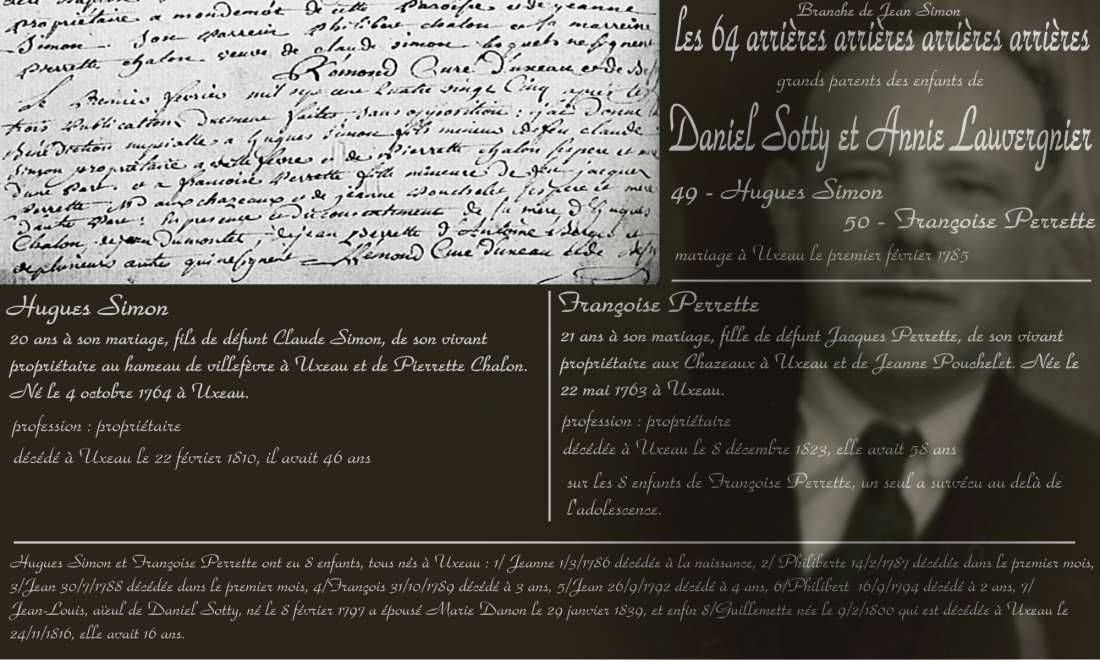 propriétaire a mondemot de cette Paroisse et de jeanne
Simon. Son Parrein philibert chalon et sa marreine
Pierrette chalon veuve de claude simon lesquels ne signent
Rémond Curé Duxeau et de
Le Premier février mil sept cent quatre vingt Cinq après les
trois Publications duement faites, sans opposition : j'ai donné la
Bénédiction nuptialle a hugues simon fils mineur de feu claude
simon propriétaire a villefevre et de Pierrette chalon ses père et mere
d'une Part, et a francoise Perrette fille mineure de feu jacques
Perrette aux chazeaux et de jeanne Pouchelet ses père et mere
d'autre Part : En presence et du consentement de la mere d'hugues
Chalon de jean Dumontet, de jean Perrette d'Antoine et
de plusieurs autre qui ne signent Rémond Curé duxeau et de
Branche de Jean Simon
les 64 arrières arrières arrières arrières
grands parents des enfants de
Daniel Sotty et Annie Lauvergnier
49 - Hugues Simon
50 - Françoise Perrette
mariage à Uxeau le premier février 1785
Hugues Simon
20 ans à son mariage, fils de défunt Claude Simon, de son vivant
propriétaire au hameau de villefèvre à Uxeau et de Pierrette Chalon.
Né le 4 octobre 1764 à Uxeau.
profession : propriétaire
décédé à Uxeau le 22 février 1810, il avait 46 ans
Françoise Perrette
21 ans à son mariage, fille de défunt Jacques Perrette, de son vivant
propriétaire aux Chazeaux à Uxeau et de Jeanne Pouchelet. Née le
22 mai 1763 à Uxeau.
profession : propriétaire
décédée à Uxeau le 8 décembre 1823, elle avait 58 ans
sur les 8 enfants de Françoise Perrette, un seul a survécu au delà de
l'adolescence.
Hugues Simon et Françoise Perrette ont eu 8 enfants, tous nés à Uxeau : 1/ Jeanne 1/3/1786 décédée à la naissance, 2/ Philiberte 14/2/1787 décédée dans le premier mois,
3/Jean 30/7/1788 décédée dans le premier mois, 4/François 31/10/1789 décédé à 3 ans, 5/Jean 26/9/1792 décédé à 4 ans, 6/Philibert 16/9/1794 décédé à 2 ans, 7/
Jean-Louis, aïeul de Daniel Sotty, né le 8 février 1797 a épousé Marie Danon le 29 janvier 1839, et enfin 8/Guillemette née le 9/2/1800 qui est décédée à Uxeau le
24/11/1816, elle avait 16 ans.